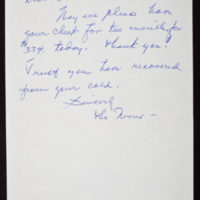 May we please have
your check for the
for
$334. today. Thank you!
Trust you have recovered
from your cold.
Sincerely